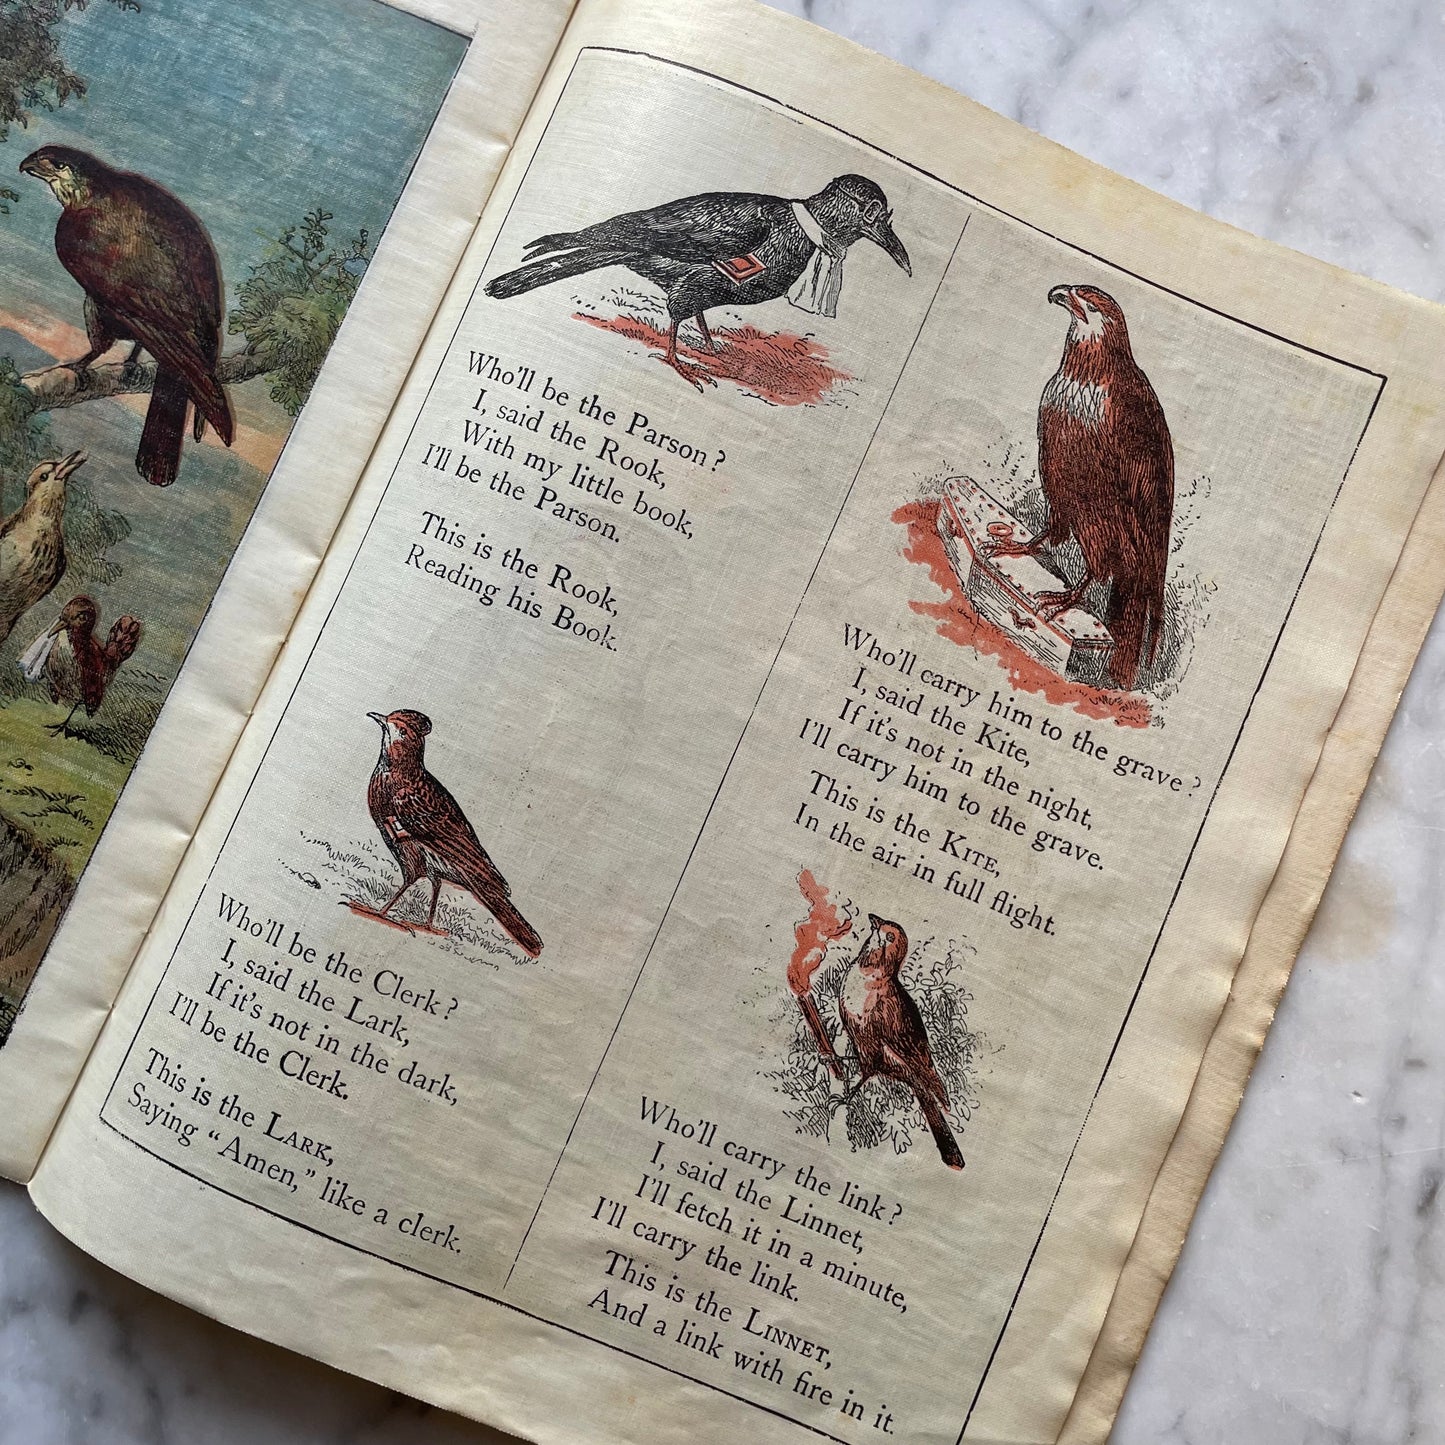 Who'll be the Parson?
I, said the Rook,
With my little book,
I'll be the Parson.
This is the Rook,
Reading his Book.
Who'll be the Clerk?
I, said the Lark,
If it's not in the dark,
I'll be the Clerk.
This is the LARK,
Saying “Amen,” like a clerk.
Who'll carry him to the grave?
I, said the Kite,
If it's not in the night,
I'll carry him to the grave.
This is the KITE,
In the air in full flight.
Who'll carry the link?
I, said the Linnet,
I'll fetch it in a minute,
I'll carry the link.
This is the LINNET,
And a link with fire in it.